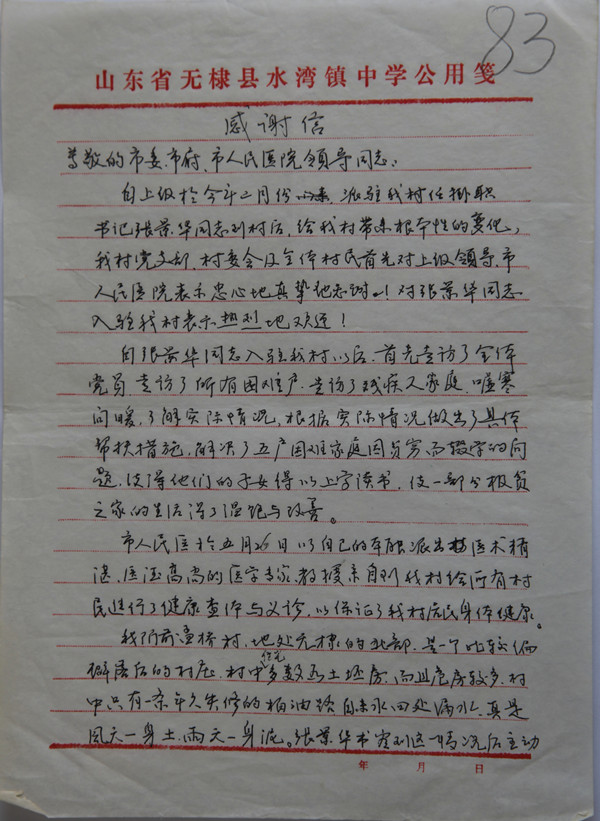 83
山东省无棣县水湾镇中学公用笺
感谢信
尊敬的市委、市府、市人民医院领导同志:
自上级于今年二月份以来,派驻我村任掛职
书记张景华同志到村后,给我村带来根本性的变化,
我村党支部、村委会及全体村民首先对上级领导、市
人民医院表示忠心地真挚地感谢!对张景华同志
入驻我村表示热烈地欢迎!
自张景华同志入驻我村以后,首先走访了全体
党员,走访了所有困难户,走访了残疾人家庭,嘘寒
问暖,了解实际情况,根据实际情况做出了具体
帮扶措施,解决了五户困难家庭因贫穷而辍学的问
题,使得他们的子女得以上学读书,使一部分极贫
之家的生活得了温饱与改善。
市人民医于五月26日以自己的车辆派出技医术精
湛、医德高尚的医学专家、教授亲自到我村给所有村
民进行了健康查体与义诊,以保证了我村居民身体健康。
我们前溋桥村,地处无棣的北部,是一个比较偏
僻落后的村庄,村中住宅多数为土坯房,而且危房较多,村
中只有一条年久失修的柏油路,自来水四处漏水,真是
风天一身土,雨天一身泥。张景华书记看到这一情况后主动
年 月 日